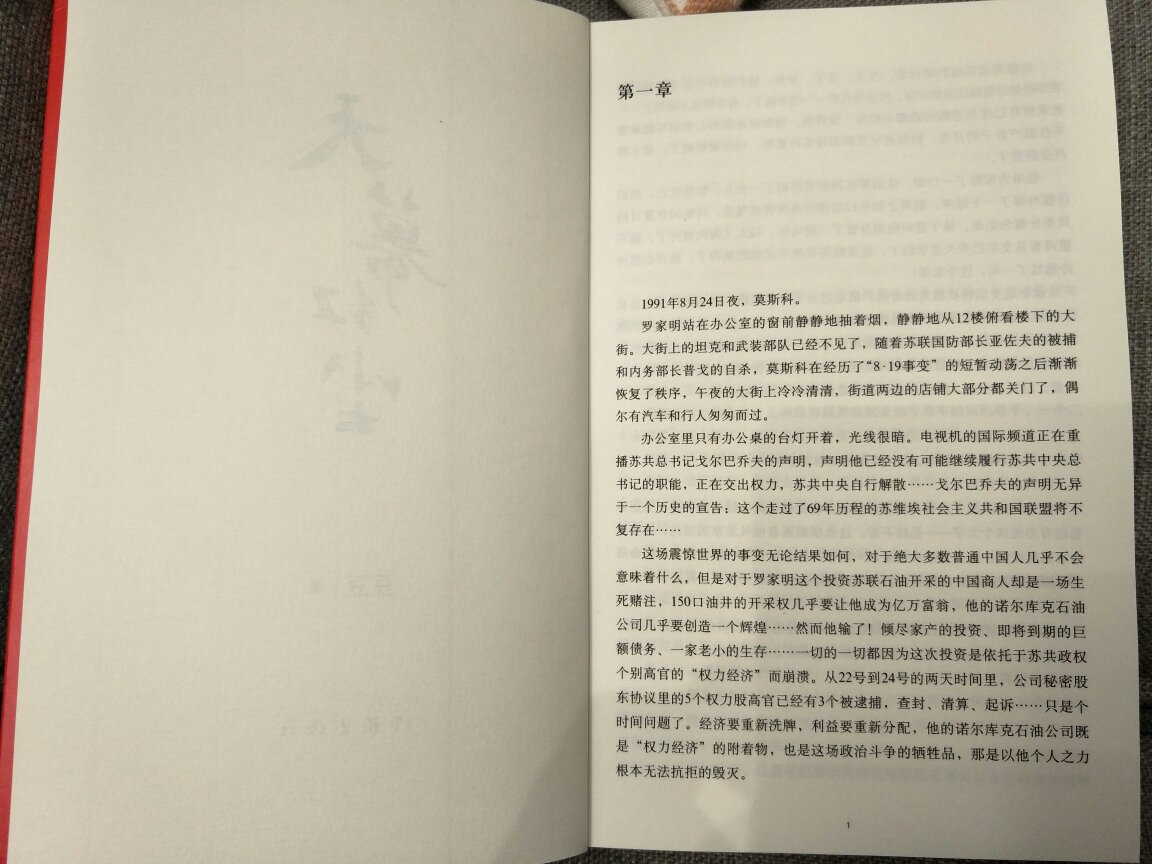 第一章
1991年8月24日夜，莫斯科。
罗家明站在办公室的窗前静静地抽着烟，静静地从12楼俯看楼下的大
街。大街上的坦克和武装部队已经不见了，随着苏联国防部长亚佐夫的被捕
和内务部长普戈的自杀，莫斯科在经历了“8·19事变”的短暂动荡之后渐渐
恢复了秩序，午夜的大街上冷冷清清，街道两边的店铺大部分都关门了，偶
尔有汽车和行人匆匆而过。
办公室里只有办公桌的台灯开着，光线很暗。电视机的国际频道正在重
播苏共总书记戈尔巴乔夫的声明，声明他已经没有可能继续履行苏共中央总
书记的职能，正在交出权力，苏共中央自行解散……戈尔巴乔夫的声明无异
于一个历史的宣告：这个走过了69年历程的苏维埃社会主义共和国联盟将不
复存在……
这场震惊世界的事变无论结果如何，对于绝大多数普通中国人几乎不会
意味着什么，但是对于罗家明这个投资苏联石油开采的中国商人却是一场生
死赌注，150口油井的开采权几乎要让他成为亿万富翁，他的诺尔库克石油
公司几乎要创造一个辉煌……然而他输了！倾尽家产的投资、即将到期的巨
额债务、一家老小的生存……一切的一切都因为这次投资是依托于苏共政权
个别高官的“权力经济”而崩溃。从22号到24号的两天时间里，公司秘密股
东协议里的5个权力股高官已经有3个被逮捕，查封、清算、起诉……只是个
时间问题了。经济要重新洗牌，利益要重新分配，他的诺尔库克石油公司既
是“权力经济”的附着物，也是这场政治斗争的牺牲品，那是以他个人之力
根本无法抗拒的毁灭。
1